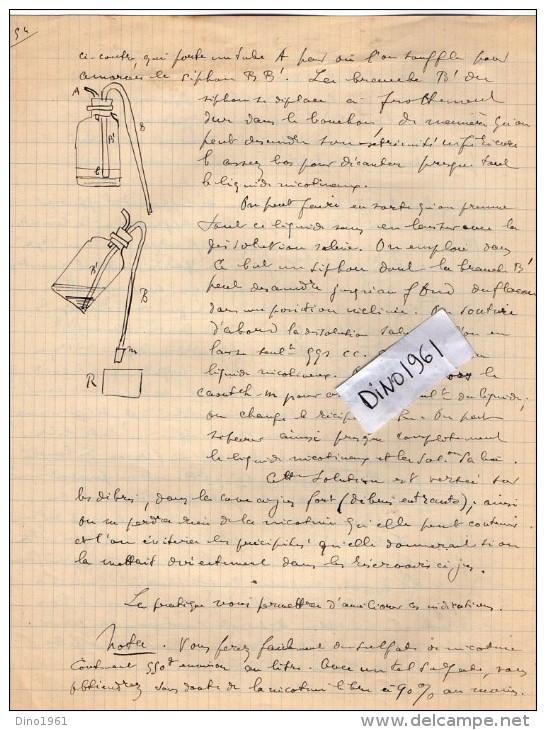 54
ci-contre, qui porte un tube A par où l'on souffle pour
amorcer le siphon B B'. La branche B' du
siphon se déplace à frottement
dur dans le bouchon de manière qu'on
peut descendre son extrémité inférieure
assez bas pour décanter presque tout
le liquide nicotineux.
On peut faire en sorte qu'on prenne
tout ce liquide sans en laisser avec la
dissolution saline. On emploie dans
ce but un siphon dont la branche B'
peut descendre jusqu'au fond du flacon
dans une position inclinée. On soutire
d'abord la dissolution
laisse seult qqs cc.
liquide nicotineux. le
m pour du liquide,
on change le récipient R. On peut
soutirer ainsi presque complètement
le liquide nicotineux et la
Cette solution est versée sur
les débris, dans la cuve au jus fort (débris entrants); ainsi
on ne perdra rien de la nicotine qu'elle peut contenir
et l'on évitera les précipités qu'elle donnerait si on
la mettait directement dans les jus.
La pratique vous permettra d'améliorer ces indications.
Nota. Vous ferez facilement du sulfate de nicotine
contenant 550 environ au litre. Avec un tel sulfate, vous
obtiendrez sans doute de la nicotine libre à 90% au moins.
A
B
B'
B'
B
m
R
DiNO1961
Dino1961
delcampe.net